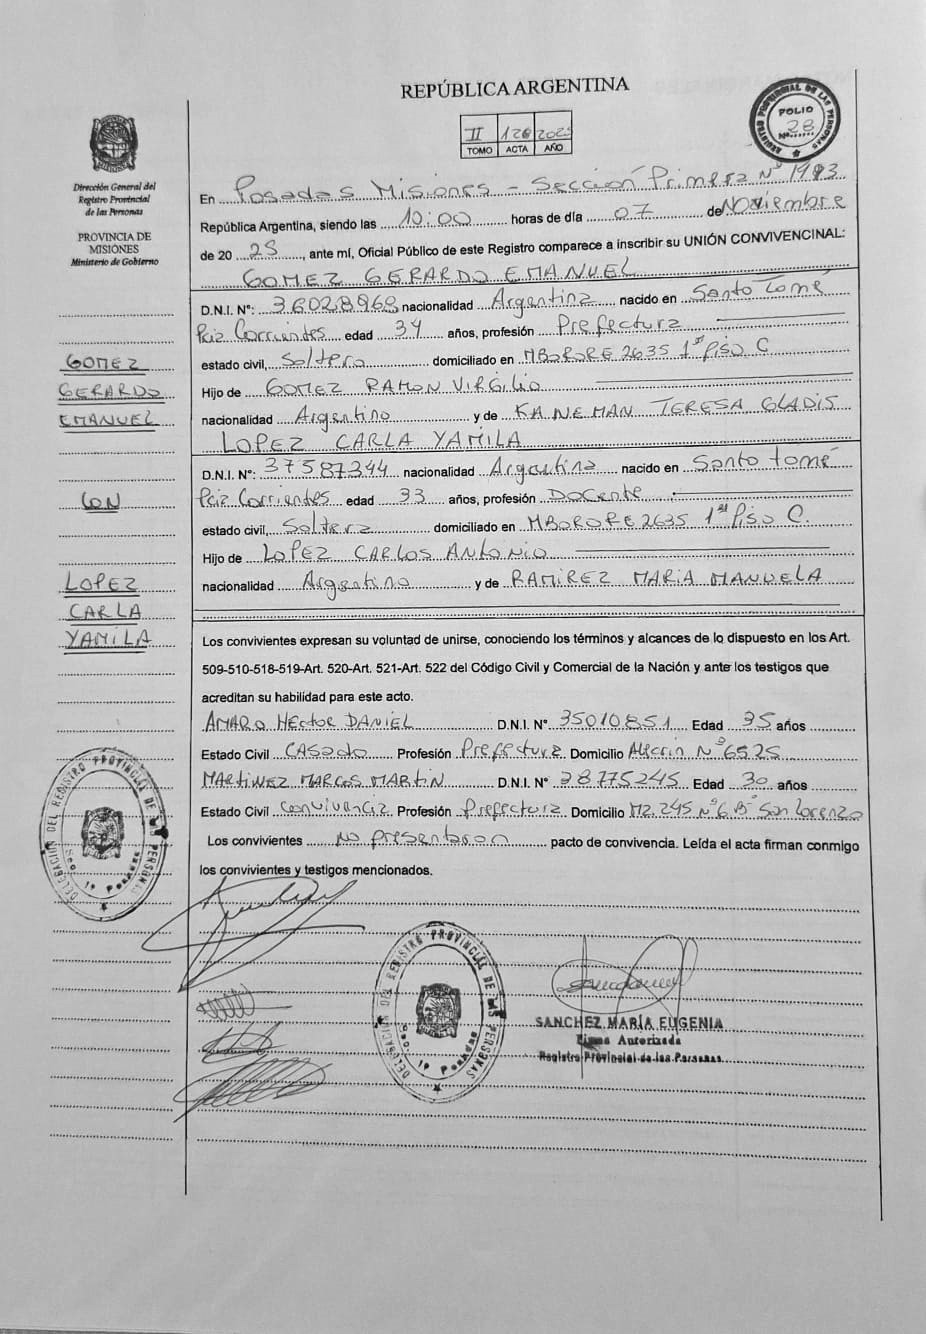 REPÚBLICA ARGENTINA
II 126 2025
TOMO ACTA AÑO
REGISTRO PROVINCIAL DE LAS PERSONAS
FOLIO
Nº 28
Dirección General del
Registro Provincial
de las Personas
PROVINCIA DE
MISIONES
Ministerio de Gobierno
GOMEZ
GERARDO
EMANUEL
CON
LOPEZ
CARLA
YAMILA
En Posadas Misiones - Sección Primera Nº 1983
República Argentina, siendo las 10:00 horas de día 07 de Noviembre
de 20 25, ante mí, Oficial Público de este Registro comparece a inscribir su UNIÓN CONVIVENCINAL:
GOMEZ GERARDO EMANUEL
D.N.I. Nº: 36028968 nacionalidad Argentina nacido en Santo Tomé
Pcia Corrientes edad 34 años, profesión Prefectura
estado civil, Soltero domiciliado en MBORORE 2635 1er Piso C
Hijo de GOMEZ RAMON VIRGILIO
nacionalidad Argentino y de KAINEMAN TERESA GLADIS
LOPEZ CARLA YAMILA
D.N.I. Nº: 37587344 nacionalidad Argentina nacido en Santo tomé
Pcia Corrientes edad 33 años, profesión Docente
estado civil, Soltera domiciliado en MBORORE 2635 1er Piso C.
Hijo de LOPEZ CARLOS ANTONIO
nacionalidad Argentino y de RAMIREZ MARIA MANUELA
Los convivientes expresan su voluntad de unirse, conociendo los términos y alcances de lo dispuesto en los Art.
509-510-518-519-Art. 520-Art. 521-Art. 522 del Código Civil y Comercial de la Nación y ante los testigos que
acreditan su habilidad para este acto.
AMARO HECTOR DANIEL D.N.I. Nº 35010851 Edad 35 años
Estado Civil CASADO Profesión Prefectura Domicilio Alecrin Nº 6525
MARTINEZ MARCOS MARTIN D.N.I. Nº 38775245 Edad 30 años
Estado Civil convivencia Profesión Prefectura Domicilio MZ. 245 Nº 6 Bº San Lorenzo
Los convivientes No presentaron pacto de convivencia. Leída el acta firman conmigo
los convivientes y testigos mencionados.
DELEGACION DEL REGISTRO PROVINCIAL DE LAS PERSONAS
Sec. 1ª Posadas
DELEGACION DEL REGISTRO PROVINCIAL DE LAS PERSONAS
Sec. 1ª Posadas
SANCHEZ MARÍA EUGENIA
Firma Autorizada
Registro Provincial de las Personas